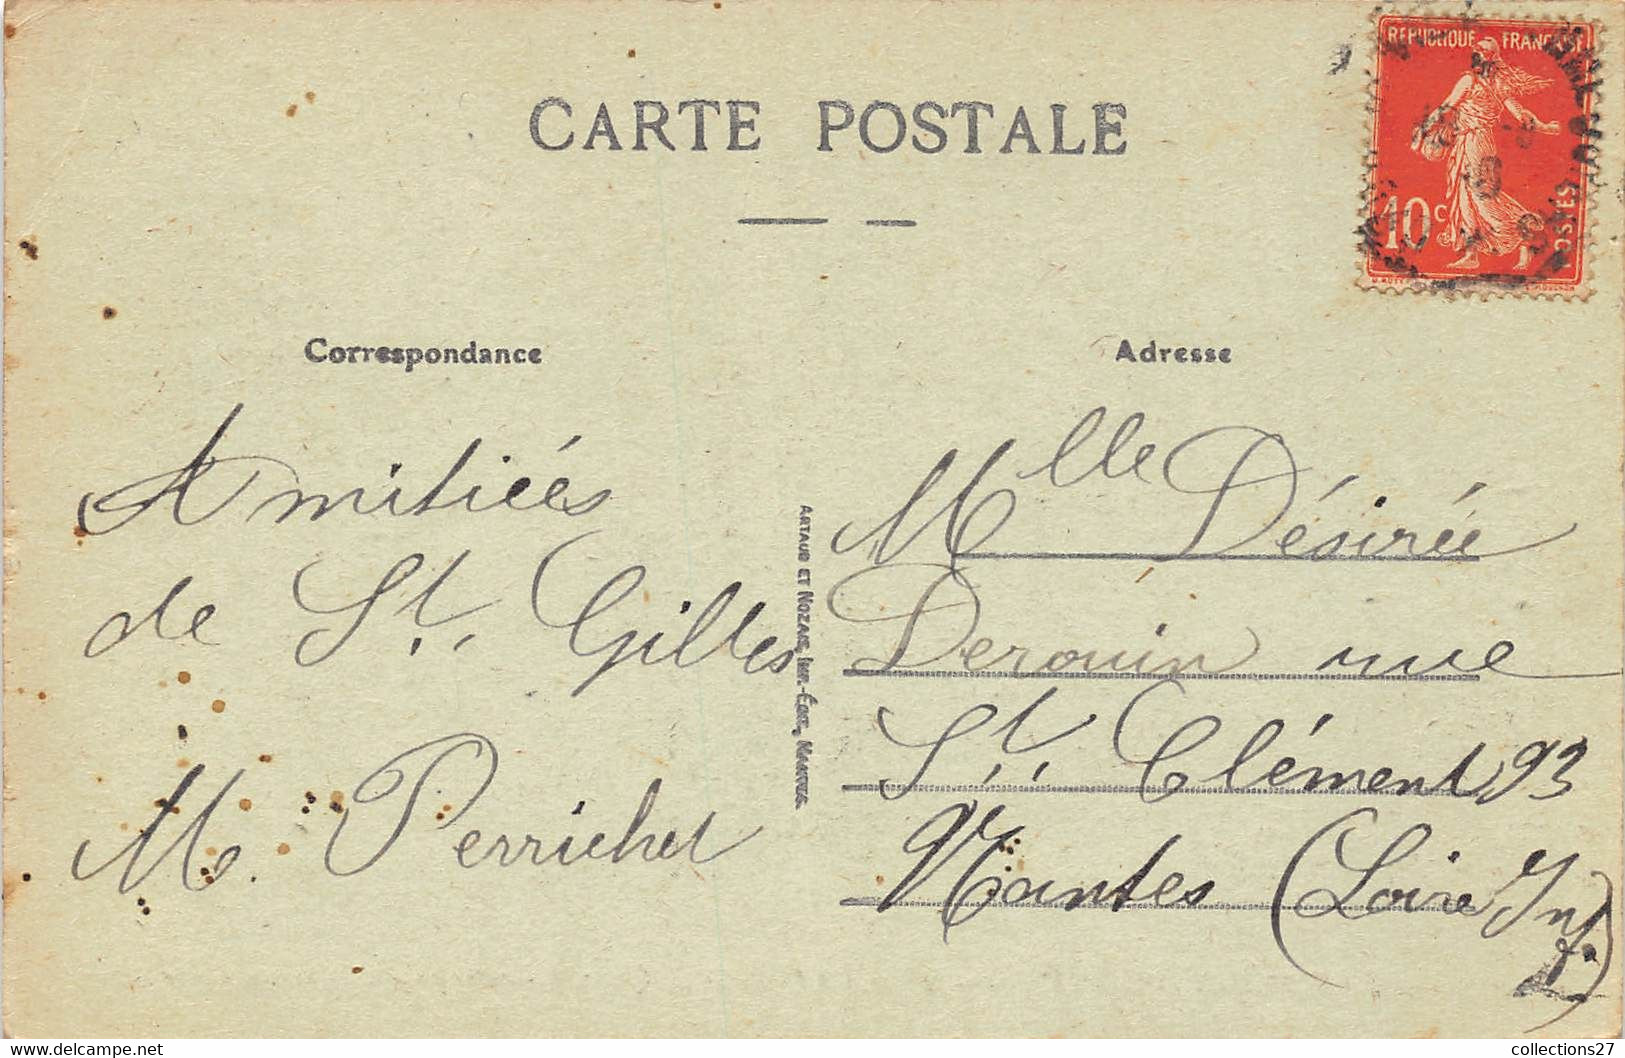 CARTE POSTALE
REPUBLIQUE FRANÇAISE
10c
POSTES
Correspondance
Adresse
Amitiées
de St. Gilles
M. Perrichet
ARTAUD ET NOZAIS, IMP.-ÉDIT., NANTES.
Mlle Désirée
Derouin rue
St. Clément 93
Nantes (Loire Inf.)
collections27